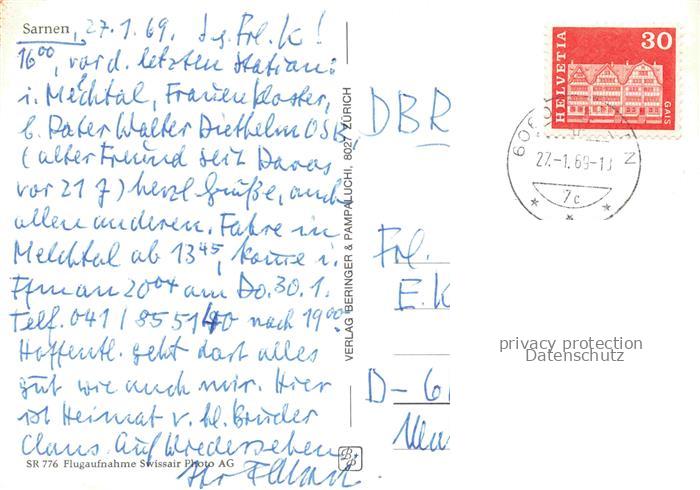 Sarnen, 27.1.69. Frl. K!
16⁰⁰, vor d. letzten Station:
i. Melchtal, Frauenkloster,
b. Pater Walter Diethelm OSB,
(alter Freund seit Davos
vor 21 J) herzl Grüße, auch
allen anderen. Fahre in
Melchtal ab 13⁴⁵, komme i.
Ffm an 20⁰⁴ am Do. 30.1.
Telf. 041 / 85 51 40 nach 19⁰⁰.
Hoffentl. geht dort alles
gut wie auch mir. Hier
ist Heimat v. hl. Bruder
Claus. Auf Wiedersehen
Ihr
SR 776 Flugaufnahme Swissair Photo AG
VERLAG BERINGER & PAMPALUCHI, 8027 ZÜRICH
B P
HELVETIA
30
GAIS
27.-1.69-1
7c
DBR
Frl.
E. K
D-6
privacy protection
Datenschutz